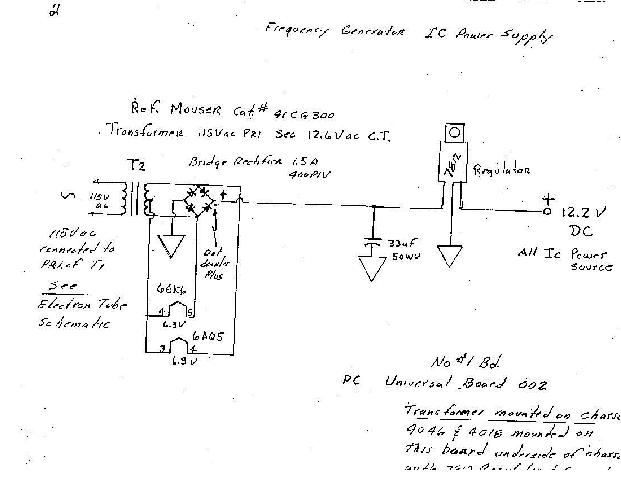 2
Frequency Generator IC Power Supply
Ref. Mouser Cat.# 41CG300
Transformer 115Vac PRI Sec 12.6Vac C.T.
Bridge Rectifier 1.5A
400PIV
T2
115V
ac
+
Regulator
+
12.2 V
DC
All Ic Power
Source
33uF
50WV
115Vac
connected to
PRI. of T1
See
Electron Tube
Schematic
Dot
denotes
Plus
6EK6
4 5
6.3V
6AQ5
3 4
6.3V
No #1 Bd.
PC Universal Board 002
Transformer mounted on chass
4046 & 4018 mounted on
This board underside of chass